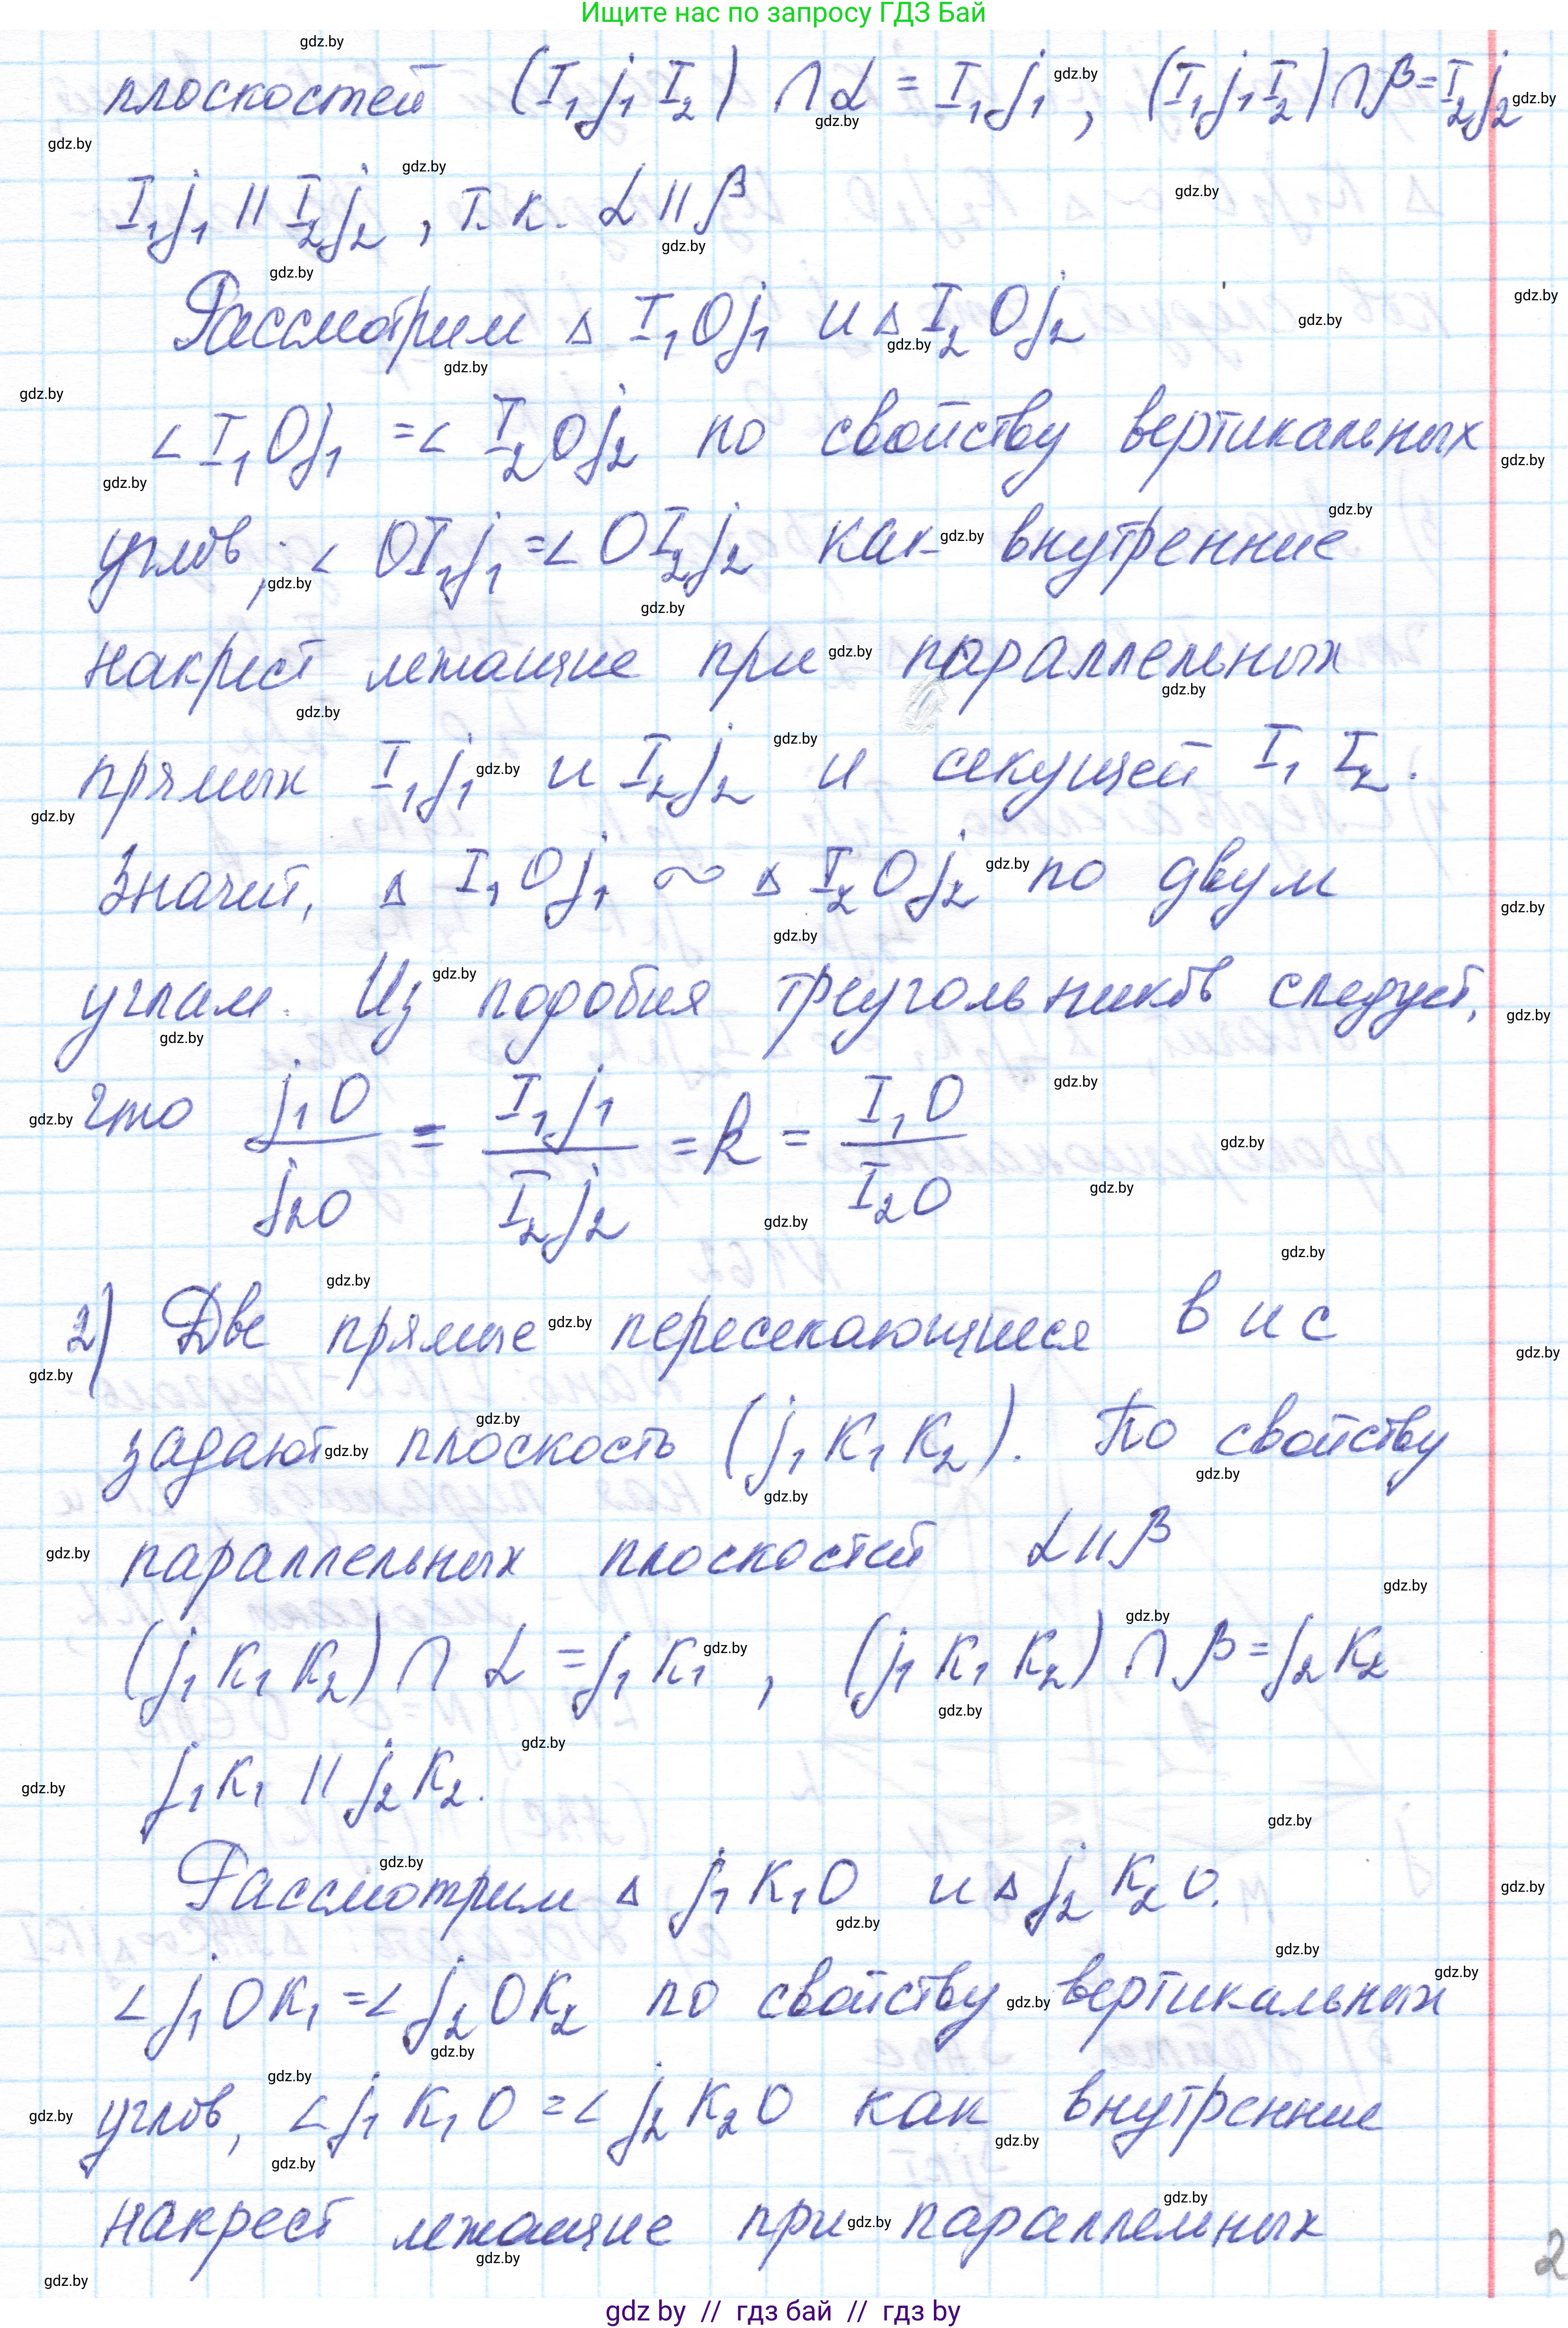 Ищите нас по запросу ГДЗ Бай
плоскостей (I₁J₁I₂) ∩ α = I₁J₁, (I₁J₁I₂) ∩ β = I₂J₂
I₁J₁ || I₂J₂, т.к. α || β
Рассмотрим Δ I₁OJ₁ и Δ I₂OJ₂
∠ I₁OJ₁ = ∠ I₂OJ₂ по свойству вертикальных
углов, ∠ OI₁J₁ = ∠ OI₂J₂ как внутренние
накрест лежащие при параллельных
прямых I₁J₁ и I₂J₂ и секущей I₁I₂.
Значит, Δ I₁OJ₁ ∼ Δ I₂OJ₂ по двум
углам. Из подобия треугольников следует,
что J₁O/J₂O = I₁J₁/I₂J₂ = k = I₁O/I₂O
2) Две прямые пересекающиеся b и c
задают плоскость (J₁K₁K₂). По свойству
параллельных плоскостей α || β
(J₁K₁K₂) ∩ α = J₁K₁, (J₁K₁K₂) ∩ β = J₂K₂
J₁K₁ || J₂K₂.
Рассмотрим Δ J₁K₁O и Δ J₂K₂O.
∠ J₁OK₁ = ∠ J₂OK₂ по свойству вертикальных
углов, ∠ J₁K₁O = ∠ J₂K₂O как внутренние
накрест лежащие при параллельных
2
gdz by // гдз бай // гдз by